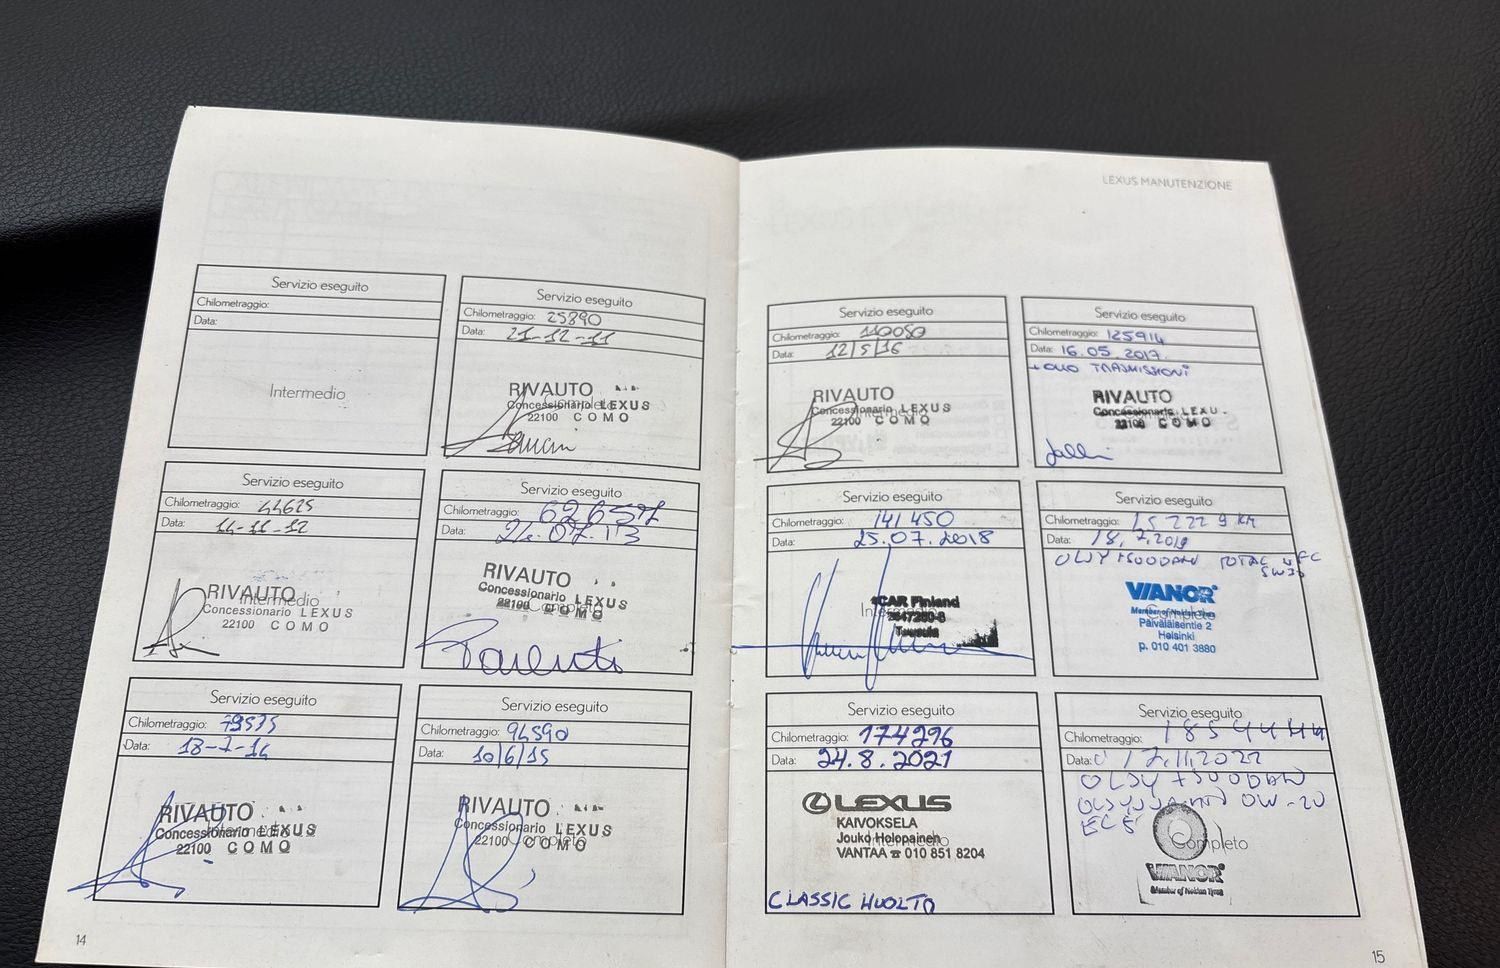 LEXUS MANUTENZIONE
Servizio eseguito
Chilometraggio:
Data:
Intermedio
Servizio eseguito
Chilometraggio: 25890
Data: 21-12-11
RIVAUTO
Concessionario LEXUS
Completo
22100 COMO
Servizio eseguito
Chilometraggio: 44625
Data: 14-11-12
RIVAUTO
Intermedio
Concessionario LEXUS
22100 COMO
Servizio eseguito
Chilometraggio:
Data:
RIVAUTO
Concessionario LEXUS
22100 COMO
Completo
Servizio eseguito
Chilometraggio: 79535
Data: 18-7-14
RIVAUTO
Concessionario LEXUS
Intermedio
22100 COMO
Servizio eseguito
Chilometraggio: 94590
Data: 10/6/15
RIVAUTO
Concessionario LEXUS
Completo
22100 COMO
14
Servizio eseguito
Chilometraggio: 110050
Data: 12/5/16
RIVAUTO
Concessionario LEXUS
Intermedio
22100 COMO
Servizio eseguito
Chilometraggio: 125914
Data: 16.05.2017
+ OLIO TRASMISSIONI
RIVAUTO
Concessionario LEXU
22100 COMO
Servizio eseguito
Chilometraggio: 141450
Data: 25.07.2018
CAR Finland
Tuusula
Servizio eseguito
Chilometraggio: 152229 KM
Data: 18.7.2019
ÖLJY + SUODAIN TOTAL
VIANOR
Member of Nokian Tyres
Completo
Päiväläisentie 2
Helsinki
p. 010 401 3880
Servizio eseguito
Chilometraggio: 174296
Data: 24.8.2021
LEXUS
KAIVOKSELA
Jouko Holopainen
Intermedio
VANTAA ☎ 010 851 8204
CLASSIC HUOLTO
Servizio eseguito
Chilometraggio:
Data: 17.11.2022
ÖLJY + SUODAIN
0W-20
Completo
VIANOR
Member of Nokian Tyres
15